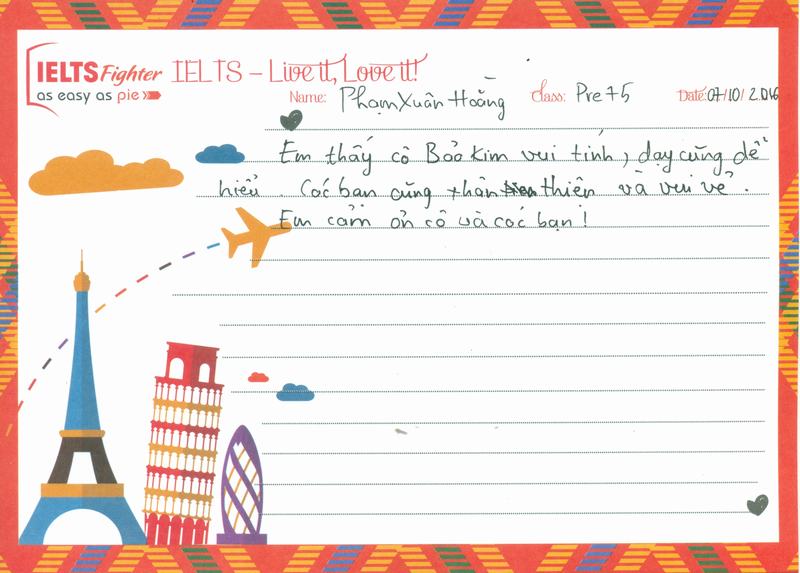 IELTS Fighter IELTS – Live it, Love it!
as easy as pie
Name: Phạm Xuân Hoằng Class: Pre 75 Date: 07/10/2016
Em thấy cô Bảo Kim vui tính, dạy cũng dễ
hiểu. Các bạn cũng thân thiện và vui vẻ.
Em cảm ơn cô và các bạn!